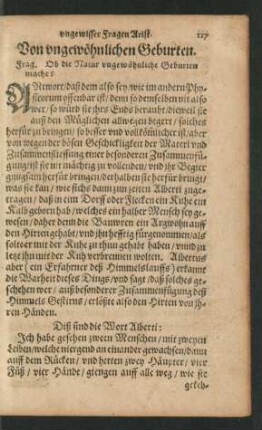 vngewisser Fragen Arist. 127
Von vngewöhnlichen Geburten.
Frag. Ob die Natur vngewöhnliche Geburten
mache?
ANtwort / daß dem also sey / wie im andern Phy-
sicorum offenbar ist / denn so demselben nit also
wer / so würde sie jhrs Ends beraubt / dieweil sie
auß den Müglichen allwegen begert / solches
herfür zu bringen / so besser vnd vollkömlicher ist / aber
von wegen der bösen Geschickligkeit der Materi vnd
Zusammenfliessung einer besonderen Zusammenfü-
gung ist sie nit mächtig zu vollenden / vnd jhr Begier
gungsam herfür bringen / derhalben sie herfür bringt /
was sie kan / wie sichs dann zun zeiten Alberti zuge-
tragen / daß in ein Dorff oder Flecken ein Kuhe ein
Kalb geboren hab / welches ein halber Mensch sey ge-
wesen / daher denn die Bauwren ein Argwohn auff
den Hirten gehabt / vnd jhn hefftig fürgenommen / als
solt er mit der Kuhe zu thun gehabt haben / vnd zu
letzt jhn mit der Kuh verbrennen wolten. Albertus
aber (ein Erfahrner deß Himmelslauffs) erkante
die Warheit dieses Dings / vnd sagt / daß solches ge-
schehen wer / auß besonderer Zusammenfügung deß
Himmels Gestirns / erlößte also den Hirten von jh-
ren Händen.
Diß sind die Wort Alberti:
Ich habe gesehen zween Menschen / mit zweyen
Leiben / welche niergend an einander gewachsen / dann
auff dem Rücken / vnd hetten zwey Häupter / vier
Füß / vier Hände / giengen auff alle weg / wie sie